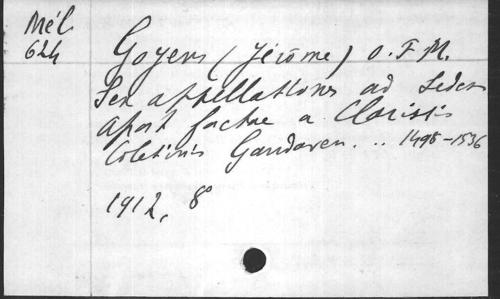 Mél.
624
Goyens (Jérôme) O.F.M.
Sex appellationes ad Sedem
Apost factae a Clarissis
Coletinis Gandaven... 1498-1536
1912, 8°